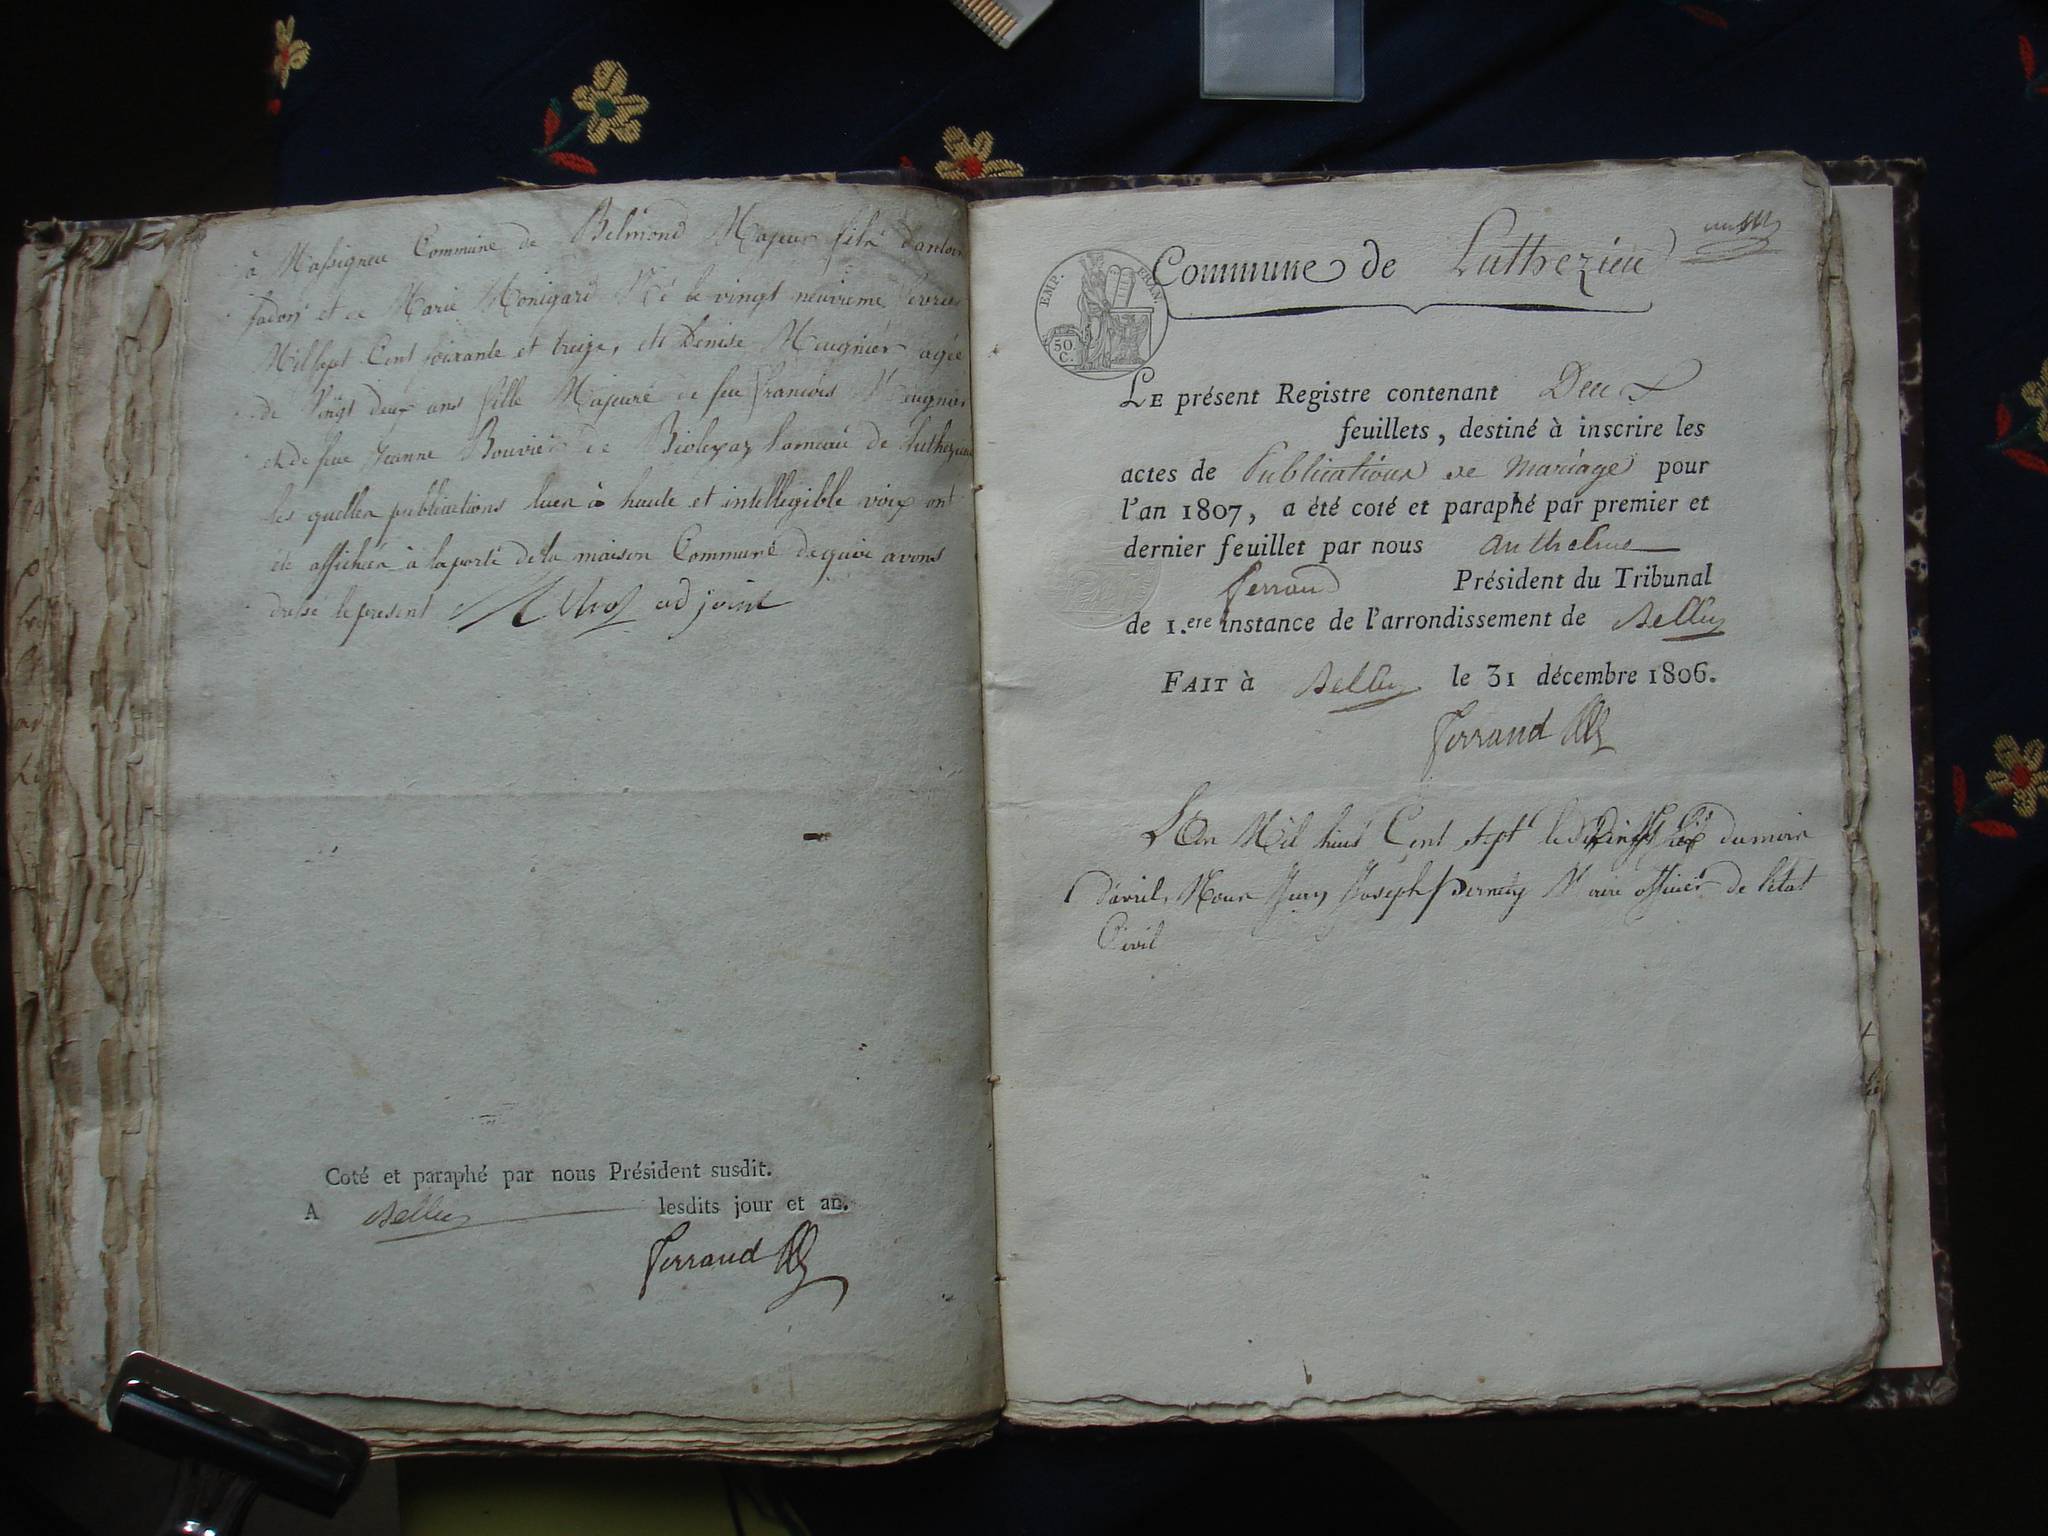 à Massigneu Commune de Belmond Majeur fils d'antoin
Jadon et de Marie Monigard Né le vingt neuvieme fevrier
Mil sept Cent soixante et treize, et Denise Meugnier agée
de Vingt deux ans fille Majeure de feu francois Meugnier
et de feue Jeanne Bouvier de Bioleyaz hameau de Luthezieu
les quelles publications lues à haute et intellegible voix ont
été affichées à la porte de la maison Commune de quoi avons
dressé le present adjoint
Coté et paraphé par nous Président susdit.
A Belley lesdits jour et an.
Ferrand
Commune de Luthezieu
EMP. FRAN.
50 C.
LE présent Registre contenant Deux
feuillets, destiné à inscrire les
actes de Publications de Mariage pour
l'an 1807, a été coté et paraphé par premier et
dernier feuillet par nous Anthelme
Ferrand Président du Tribunal
de 1.ere instance de l'arrondissement de Belley
FAIT à Belley le 31 décembre 1806.
Ferrand
L'An Mil huit Cent sept le du mois
d'avril, Nous Jean Joseph Maire officier de l'état
Civil